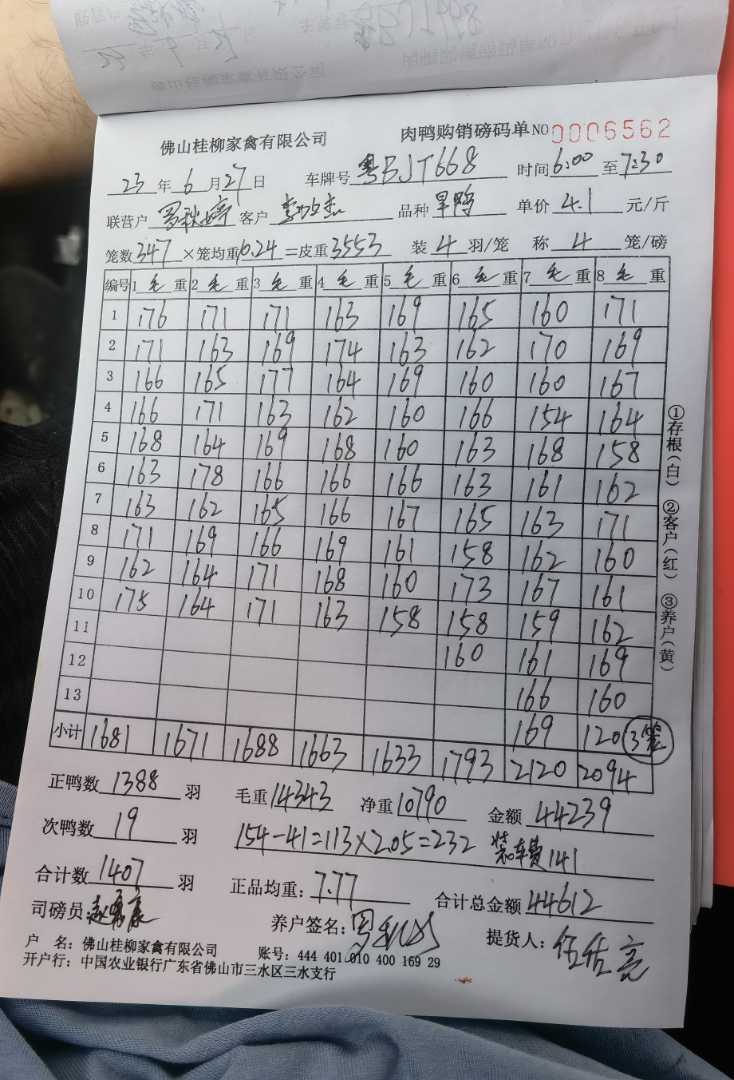 佛山桂柳家禽有限公司 肉鸭购销磅码单 NO 0006562
23 年 6 月 27 日 车牌号 粤BJT668 时间 6:00 至 7:30
联营户 罗秋婷 客户 品种 旱鸭 单价 4.1 元/斤
笼数 347 ×笼均重 10.24 =皮重 3553 装 4 羽/笼 称 4 笼/磅
编号 1 毛 重 2 毛 重 3 毛 重 4 毛 重 5 毛 重 6 毛 重 7 毛 重 8 毛 重
1 176 171 171 163 169 165 160 171
2 171 163 169 174 163 162 170 169
3 166 165 177 164 169 160 160 167
4 166 171 163 162 160 166 154 164
5 168 164 169 168 160 163 168 158
6 163 178 166 166 166 163 161 162
7 163 162 165 166 167 165 163 171
8 171 169 166 169 161 158 162 160
9 162 164 171 168 160 173 167 161
10 175 164 171 163 158 158 159 162
11 160 161 169
12 166 160
13 169 120 3笼
小计 1681 1671 1688 1663 1633 1793 2120 2094
①存根(白) ②客户(红) ③养户(黄)
正鸭数 1388 羽 毛重 14343 净重 10790 金额 44239
次鸭数 19 羽 154-41=113×2.05=232 装车费 141
合计数 1407 羽 正品均重: 7.77 合计总金额 44612
司磅员: 养户签名: 提货人:
户 名: 佛山桂柳家禽有限公司 账号: 444 401 010 400 169 29
开户行: 中国农业银行广东省佛山市三水区三水支行